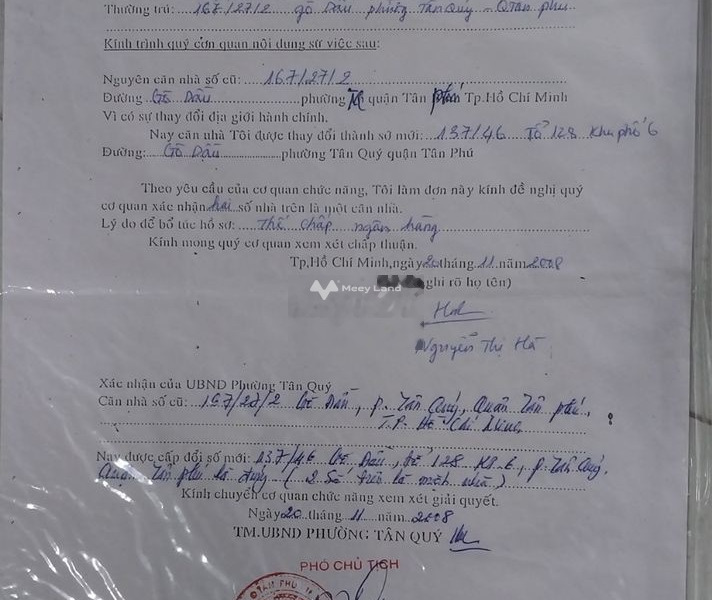 Thường trú: 167/27/2 Gò Dầu phường Tân Quý - Q Tân phú
Kính trình quý cơ quan nội dung sự việc sau:
Nguyên căn nhà số cũ: 167/27/2
Đường Gò Dầu phường quận Tân phú Tp.Hồ Chí Minh
Vì có sự thay đổi địa giới hành chính.
Nay căn nhà Tôi được thay đổi thành số mới: 137/46 Tổ 128 Khu phố 6
Đường: Gò Dầu phường Tân Quý quận Tân Phú
Theo yêu cầu của cơ quan chức năng, Tôi làm đơn này kính đề nghị quý
cơ quan xác nhận hai số nhà trên là một căn nhà.
Lý do để bổ túc hồ sơ: Thế chấp ngân hàng
Kính mong quý cơ quan xem xét chấp thuận.
Tp,Hồ Chí Minh,ngày 20 tháng 11 năm 2008
ghi rõ họ tên)
Meey Land
Nguyễn Thị Hà
Xác nhận của UBND Phường Tân Quý
Căn nhà số cũ: 167/27/2 Gò Dầu, P. Tân Quý, Quận Tân phú,
T.P. Hồ Chí Minh
Nay được cấp đổi số mới: 137/46 Gò Dầu, tổ 128 KP.6, P. Tân Quý,
Quận Tân phú là đúng ( 2 Số trên là một nhà )
Kính chuyển cơ quan chức năng xem xét giải quyết.
Ngày 20 tháng 11 năm 2008
TM.UBND PHƯỜNG TÂN QUÝ
PHÓ CHỦ TỊCH